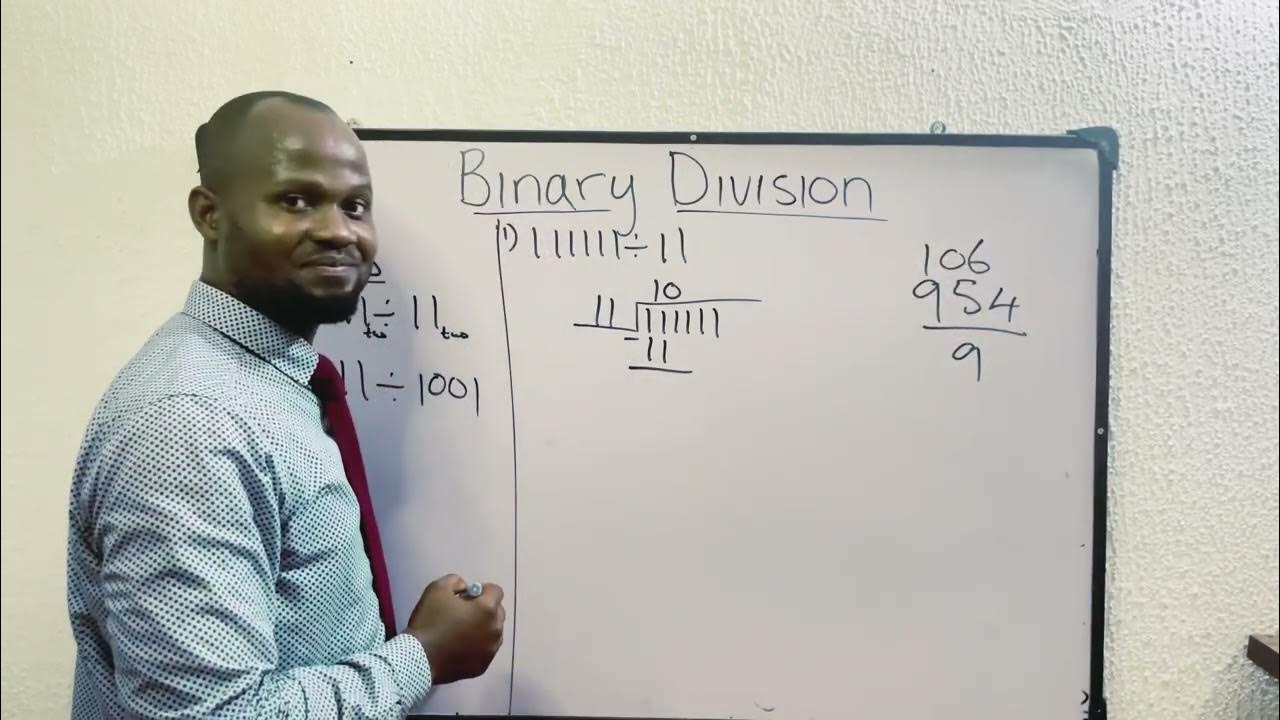 Binary Division
1two ÷ 11two
11 ÷ 1001
1) 111111 ÷ 11
10
11 111111
-11
106
954
9